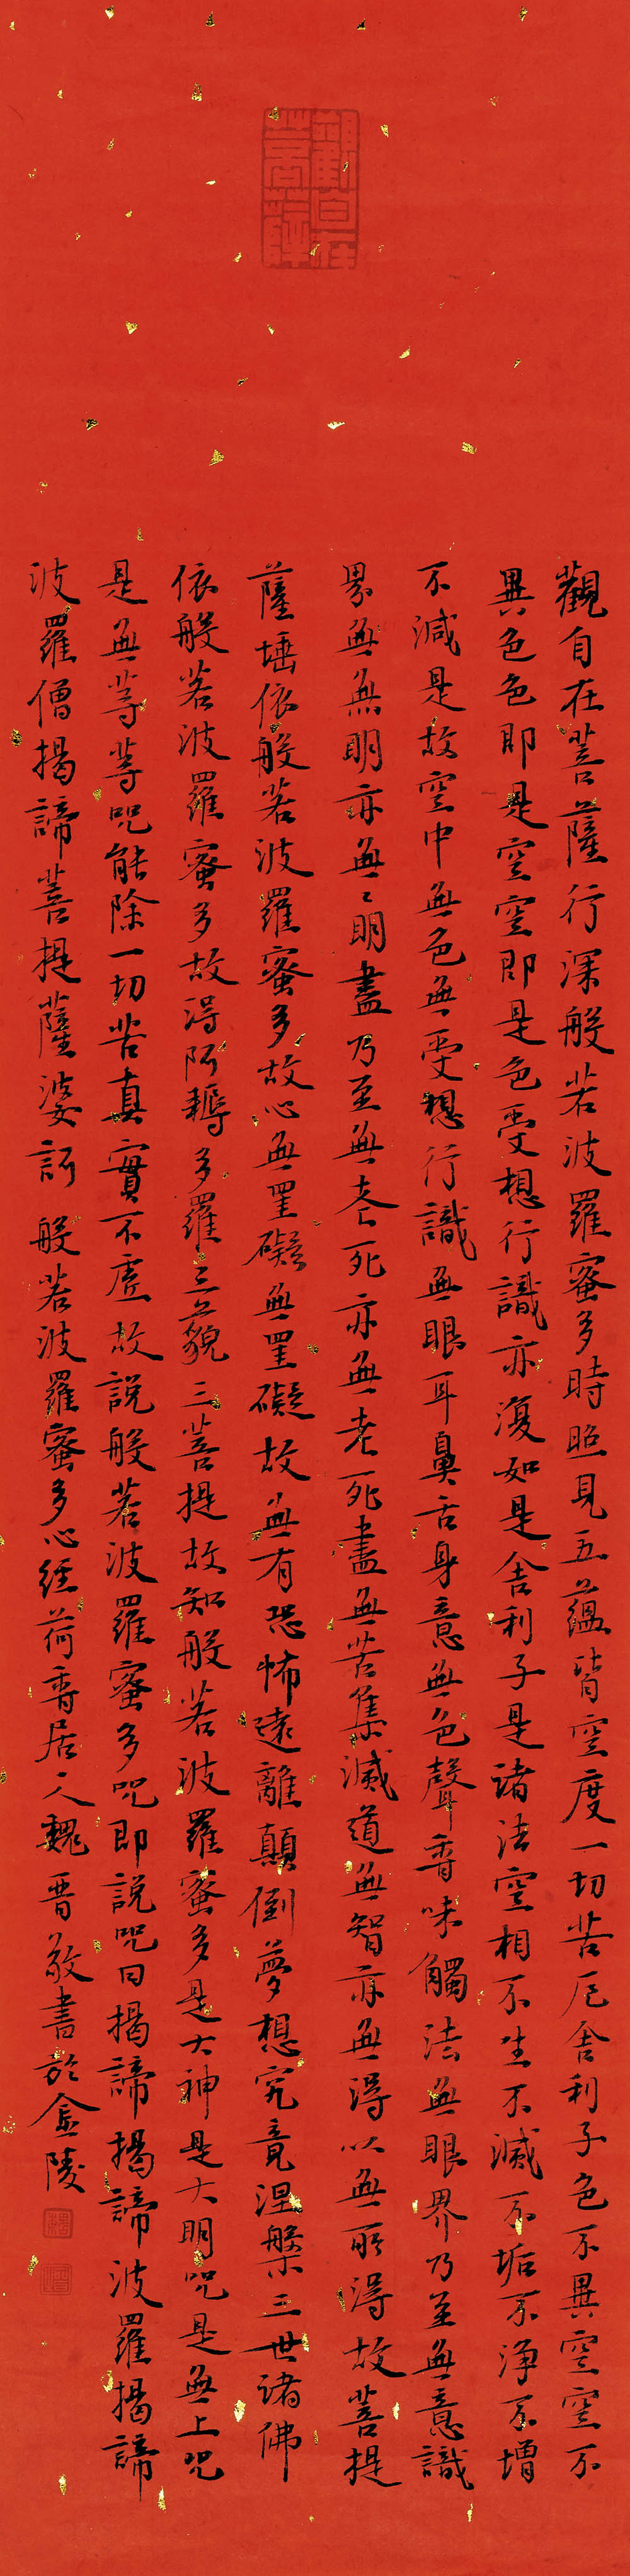 觀自在菩薩
觀自在菩薩行深般若波羅蜜多時照見五蘊皆空度一切苦厄舍利子色不異空空不
異色色即是空空即是色受想行識亦復如是舍利子是諸法空相不生不滅不垢不淨不增
不減是故空中無色無受想行識無眼耳鼻舌身意無色聲香味觸法無眼界乃至無意識
界無無明亦無〻明盡乃至無老死亦無老死盡無苦集滅道無智亦無得以無所得故菩提
薩埵依般若波羅蜜多故心無罣礙無罣礙故無有恐怖遠離顛倒夢想究竟涅槃三世諸佛
依般若波羅蜜多故得阿耨多羅三藐三菩提故知般若波羅蜜多是大神是大明呪是無上呪
是無等等呪能除一切苦真實不虛故說般若波羅蜜多呪即說呪曰揭諦揭諦波羅揭諦
波羅僧揭諦菩提薩婆訶 般若波羅蜜多心經荷香居人魏晋敬書於金陵